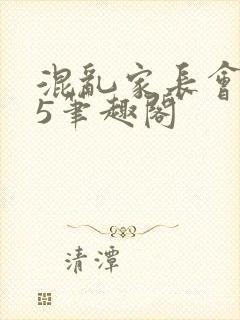 混亂家長會
5筆趣閣
清潭